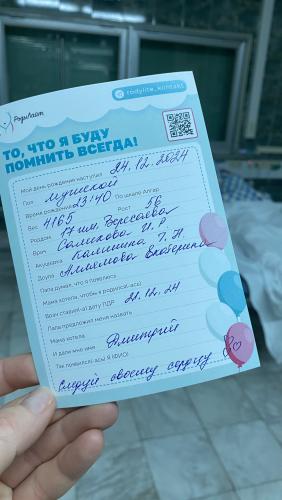 РодиЛайт
rodylite_kontakt
ТО, ЧТО Я БУДУ
ПОМНИТЬ ВСЕГДА!
Мой день рождения наступил 24.12.2024
Пол мужской
Время рождения 23:40 По шкале Апгар
Вес 4165 Рост 56
Роддом 17 им. Вересаева
Врач Салихова И. Р
Акушерка Калинина Т. Н
Доула Алиямова Екатерина
Папа думал, что я появлюсь
Мама хотела, чтобы я родился(-ась)
Врач ставил(-а) дату ПДР 21.12.24
Папа предложил меня назвать
Мама хотела
И дали мне имя Дмитрий
Так появился(-ась) Я (ФИО)
Следуй своему сердцу